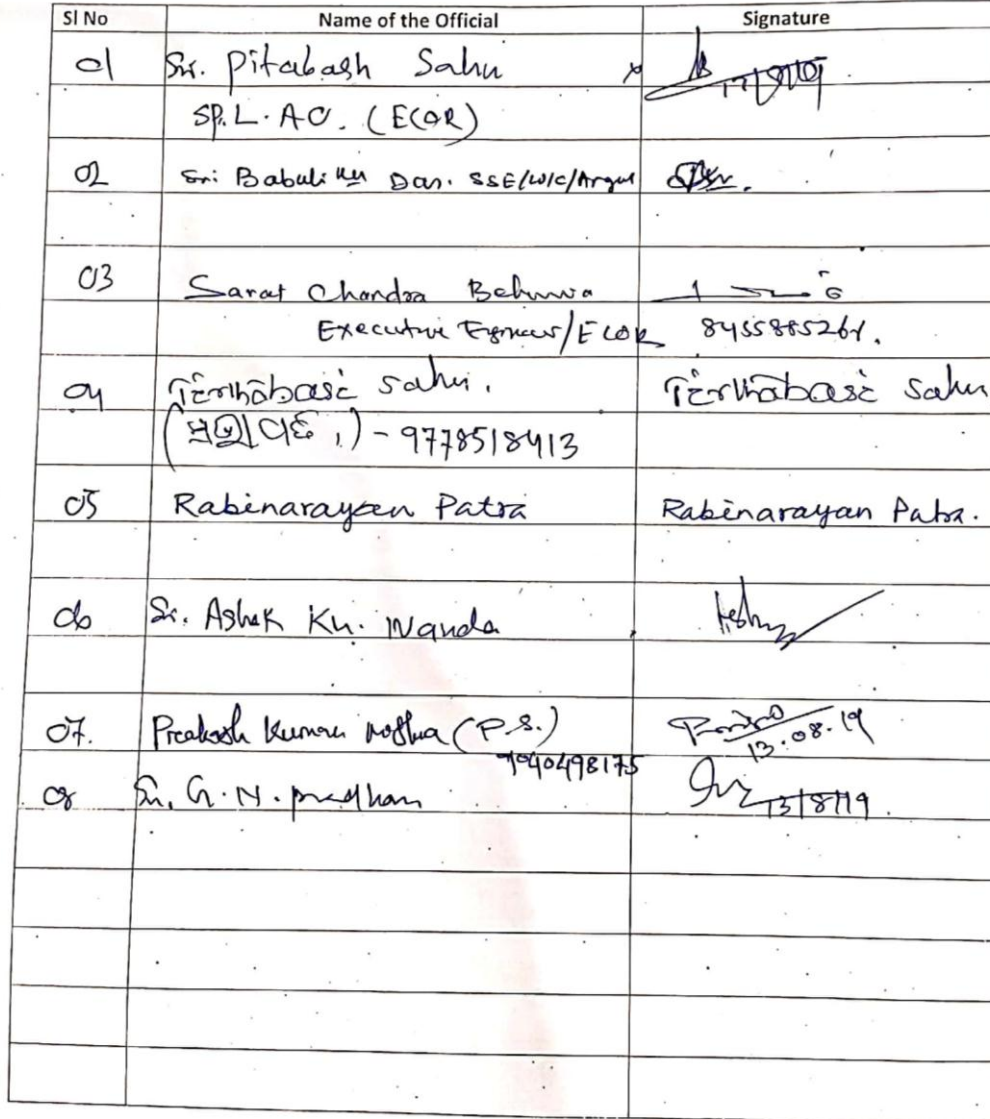 Sl No Name of the Official Signature
01 Sri. Pitabash Sahu
SP. L. A.O. (ECOR)
02 Sri Babuli Ku Das. SSE/W/C/Argul
03 Sarat Chandra Behura
Executive Engineer/ECOR 8455885261.
04 Tērthābasē Sahu. Tērthābasē Sahu
- 9778518413
05 Rabinarayan Patra Rabinarayan Patra.
06 Sr. Ashok Ku. Nanda
07. Prakash Kumar (P.S.)
13.08.19
9040498175
08 Sri. G.N. pradhan 13/8/19.